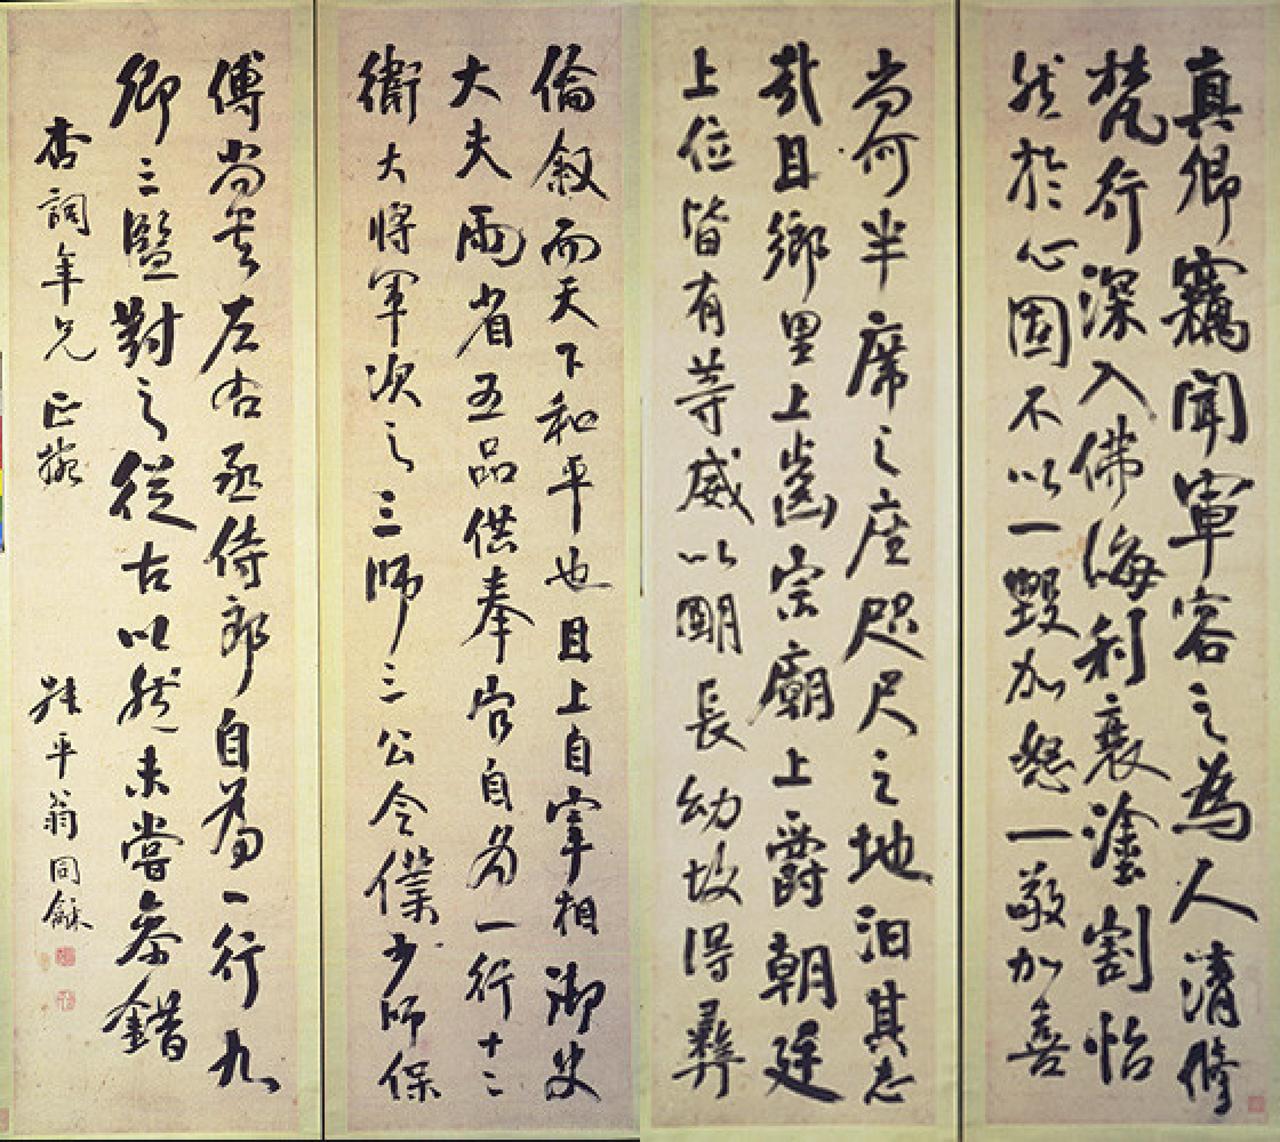 真卿竊聞軍容之為人清脩
梵行深入佛海利衰塗割怡
然於心固不以一毀加怒一敬加喜
尚何半席之座咫尺之地汩其志
哉且鄉里上齒宗廟上爵朝廷
上位皆有等威以明長幼故得彝
倫敘而天下和平也且上自宰相御史
大夫兩省五品供奉官自為一行十二
衛大將軍次之三師三公令僕少師保
傅尚書左右丞侍郎自為一行九
卿三監對之從古以然未嘗參錯
杏詞年兄正捥
姪平翁同龢